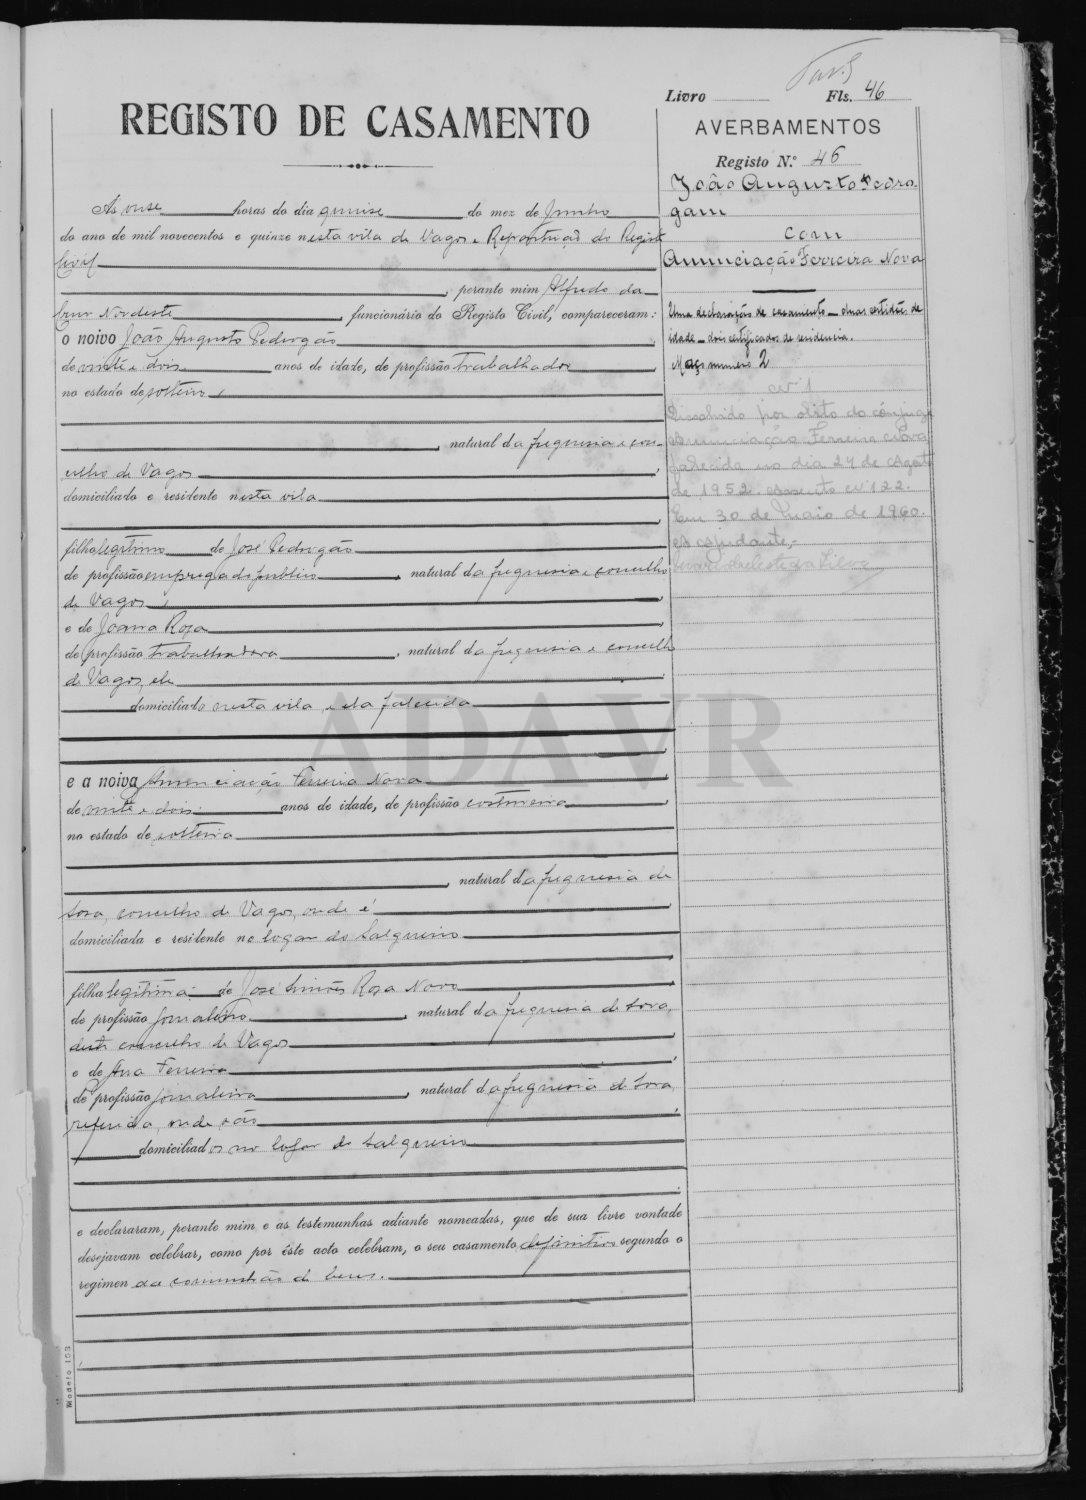 Livro Fls. 46
REGISTO DE CASAMENTO
AVERBAMENTOS
Registo N.º 46
João Augusto Pedro-
gam
com
Anunciação Ferreira Nova
Uma declaração de casamento – duas certidões de
idade – dois certificados de residencia.
Maço numero 2
Nº 1
Dissolvido por obito do cônjuge
Anunciação Ferreira Nova
falecida no dia 27 de Agosto
de 1952. Assento nº 122.
Em 30 de Maio de 1960.
O ajudante,
Ás onse horas do dia quinse do mez de Junho
do ano de mil novecentos e quinze nesta vila de Vagos e Repartição do Registo
Civil
, perante mim Alfredo da
Cruz Nordeste, funcionário do Registo Civil, compareceram:
o noivo João Augusto Pedrogão
de vinte e dois anos de idade, de profissão trabalhador
no estado de solteiro,
, natural da freguesia e con-
celho de Vagos
domiciliado e residente nesta vila
filho legitimo de José Pedrogão
de profissão empregado publico, natural da freguesia e concelho
de Vagos,
e de Joana Rosa
de profissão trabalhadora, natural da freguesia e concelho
de Vagos, ele
domiciliado nesta vila, e ela falecida
e a noiva Anunciação Ferreira Nova
de vinte e dois anos de idade, de profissão costureira
no estado de solteira
, natural da freguesia de
Sosa, concelho de Vagos, onde é
domiciliada e residente no logar do Salgueiro
filha legitima de José Simões Rosa Novo
de profissão jornaleiro, natural da freguesia de Sosa,
deste concelho de Vagos
e de Ana Ferreira
de profissão jornaleira, natural da freguesia de Sosa
referida, onde são
domiciliados no logar do Salgueiro
e declararam, perante mim e as testemunhas adiante nomeadas, que de sua livre vontade
desejavam celebrar, como por êste acto celebram, o seu casamento definitivo segundo o
regimen da comunhão de bens.
Modelo 153
ADAVR